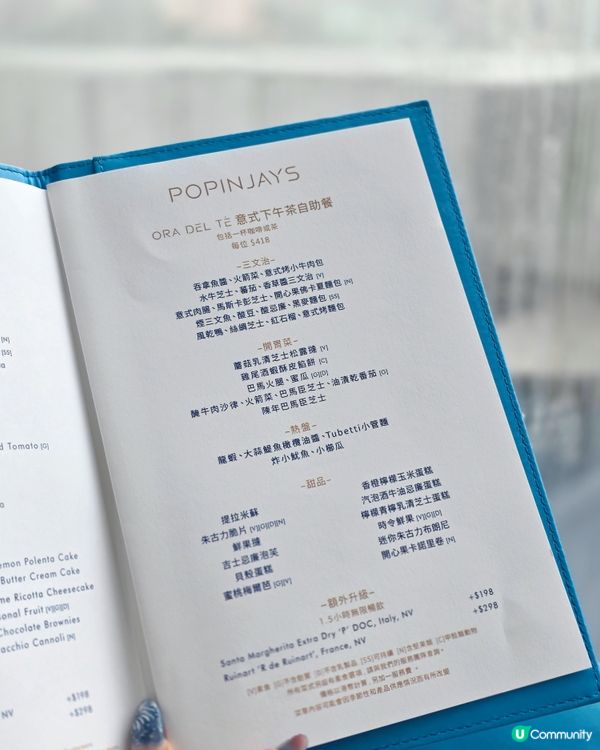 [N]
[SS]
a
d Tomato [G]
a
emon Polenta Cake
Butter Cream Cake
me Ricotta Cheesecake
sonal Fruit [V][G][D]
Chocolate Brownies
tacchio Cannoli [N]
+$198
NV
+$298
POPINJAYS
ORA DEL TÈ 意式下午茶自助餐
包括一杯咖啡或茶
每位 $418
–三文治–
吞拿魚醬、火箭菜、意式烤小牛肉包
水牛芝士、蕃茄、香草醬三文治 [V]
意式肉腸、馬斯卡彭芝士、開心果佛卡夏麵包 [N]
煙三文魚、酸豆、酸忌廉、黑麥麵包 [SS]
風乾鴨、絲綢芝士、紅石榴、意式烤麵包
–開胃菜–
蘑菇乳清芝士松露撻 [V]
雞尾酒蝦酥皮餡餅 [C]
巴馬火腿、蜜瓜 [G][D]
醃牛肉沙律、火箭菜、巴馬臣芝士、油漬乾番茄 [G]
陳年巴馬臣芝士
–熱盤–
龍蝦、大蒜鯷魚橄欖油醬、Tubetti小管麵
炸小魷魚、小櫛瓜
–甜品–
提拉米蘇
朱古力脆片 [V][G][D][N]
鮮果撻
吉士忌廉泡芙
貝殼蛋糕
蜜桃梅爾芭 [G][V]
香橙檸檬玉米蛋糕
汽泡酒牛油忌廉蛋糕
檸檬青檸乳清芝士蛋糕
時令鮮果 [V][G][D]
迷你朱古力布朗尼
開心果卡諾里卷 [N]
–額外升級–
1.5小時無限暢飲
Santa Margherita Extra Dry 'P' DOC, Italy, NV +$198
Ruinart 'R de Ruinart', France, NV +$298
[V]素食 [G]不含麩質 [D]不含乳製品 [SS]可持續 [N]含堅果類 [C]甲殼類動物
所有菜式另設有素食選項，請與我們的服務團隊查詢。
價格以港幣計算，另加一服務費。
菜單內容可能會因季節性和產品供應情況而有所改變
U Community